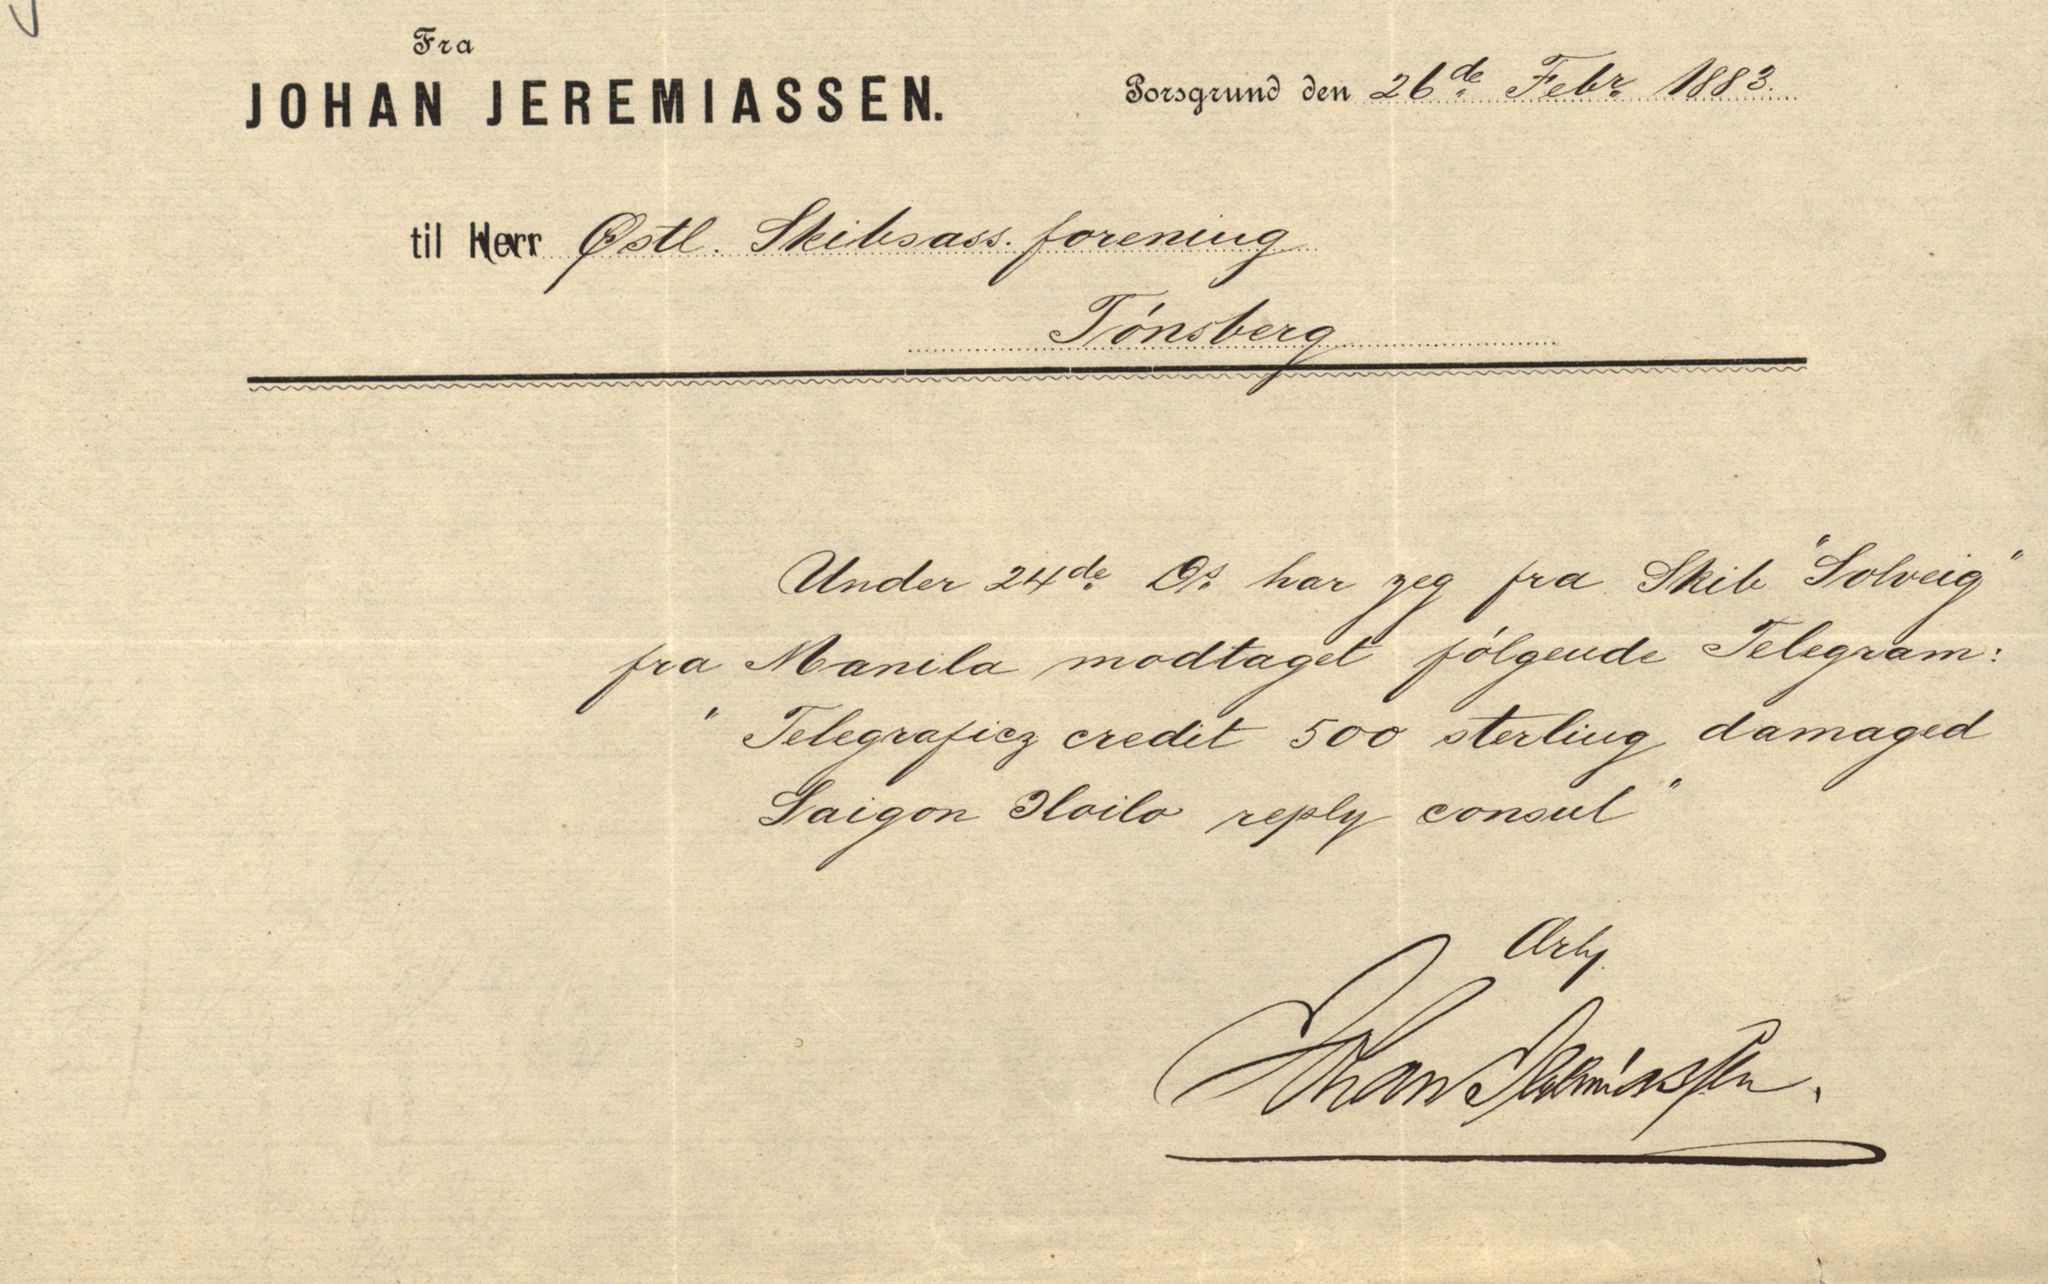 Fra
JOHAN JEREMIASSEN.
Porsgrund den 26de Febr. 1883.
til Herr Østl. Skibsass. forening
Tónsberg
Under 24de Ds. har jeg fra Skib "Solveig"
fra Manila modtaget fólgende Telegram:
" Telegraficz credit 500 sterling damaged
Saigon Iloilo reply consul"
Ærb.
Johan Jeremiassen.